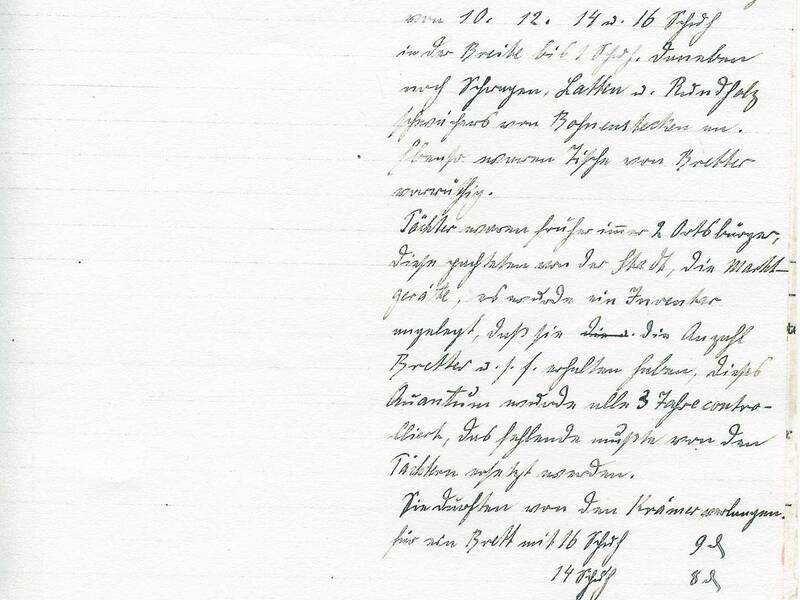 von 10. 12. 14 u. 16 Schuh
in der Breite bis 1 Schuh. daneben
noch Schragen, Latten u. Rundholz
von Bohnenstecken an.
Ebenso waren Tische von Bretter
vorräthig.
Pächter waren früher immer 2 Ortsbürger,
diese pachteten von der Stadt, die Markt-
geräte, es wurde ein Inventar
angelegt, daß sie die u. die Anzahl
Bretter u. s. f. erhalten haben, dieses
Quantum wurde alle 3 Jahre contro-
lliert, das fehlende mußte von den
Pächtern ersetzt werden.
Sie durften von den Krämer verlangen.
für ein Brett mit 16 Schuh 9 d
14 Schuh 8 d